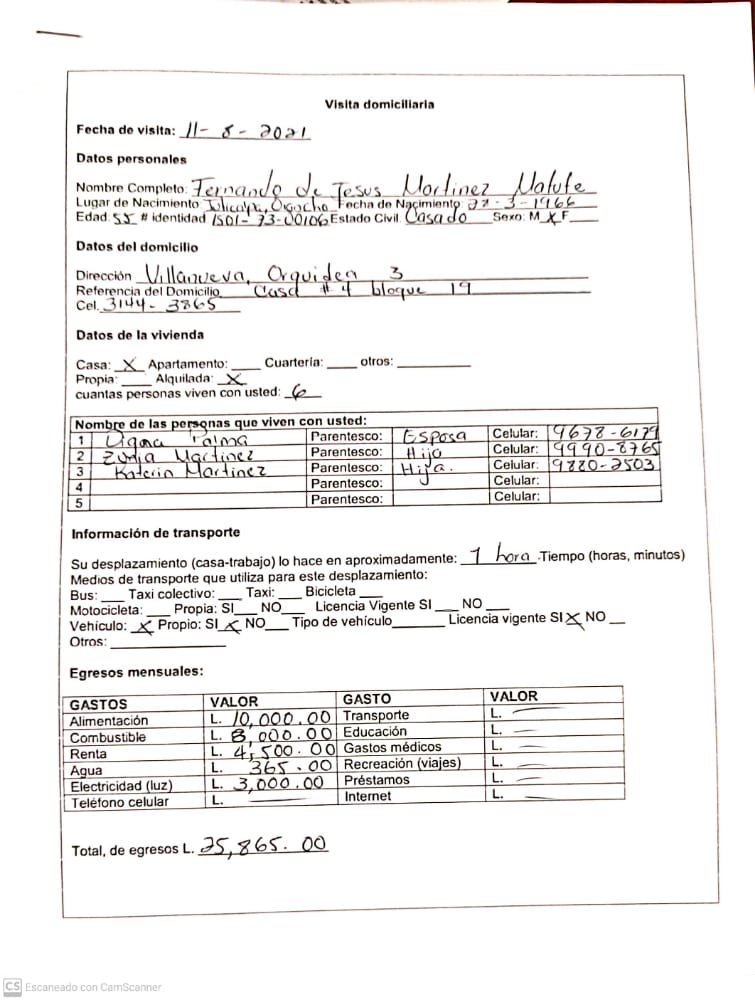 Visita domiciliaria
Fecha de visita: 11- 8 - 2021
Datos personales
Nombre Completo: Fernando de Jesus Martinez Matute
Lugar de Nacimiento Juticalpa, Olancho Fecha de Nacimiento: 27-3-1966
Edad 55 # identidad 1501-73-00106 Estado Civil Casado Sexo: M X F
Datos del domicilio
Dirección Villanueva, Orquidea 3
Referencia del Domicilio Casa # 4 bloque 19
Cel. 3144-3865
Datos de la vivienda
Casa: X Apartamento: Cuartería: otros:
Propia: Alquilada: X
cuantas personas viven con usted: 6
Nombre de las personas que viven con usted:
1 Palma Parentesco: Esposa Celular: 9678-6179
2 Martinez Parentesco: Hijo Celular: 9990-8765
3 Katerin Martinez Parentesco: Hija. Celular: 9880-2503
4 Parentesco: Celular:
5 Parentesco: Celular:
Información de transporte
Su desplazamiento (casa-trabajo) lo hace en aproximadamente: 1 hora .Tiempo (horas, minutos)
Medios de transporte que utiliza para este desplazamiento:
Bus: Taxi colectivo: Taxi: Bicicleta
Motocicleta: Propia: SI NO Licencia Vigente SI NO
Vehículo: X Propio: SI X NO Tipo de vehículo Licencia vigente SI X NO
Otros:
Egresos mensuales:
GASTOS VALOR GASTO VALOR
Alimentación L. 10,000.00 Transporte L. —
Combustible L. 8,000.00 Educación L. —
Renta L. 4,500.00 Gastos médicos L. —
Agua L. 365.00 Recreación (viajes) L. —
Electricidad (luz) L. 3,000.00 Préstamos L. —
Teléfono celular L. — Internet L. —
Total, de egresos L. 25,865.00
CS Escaneado con CamScanner